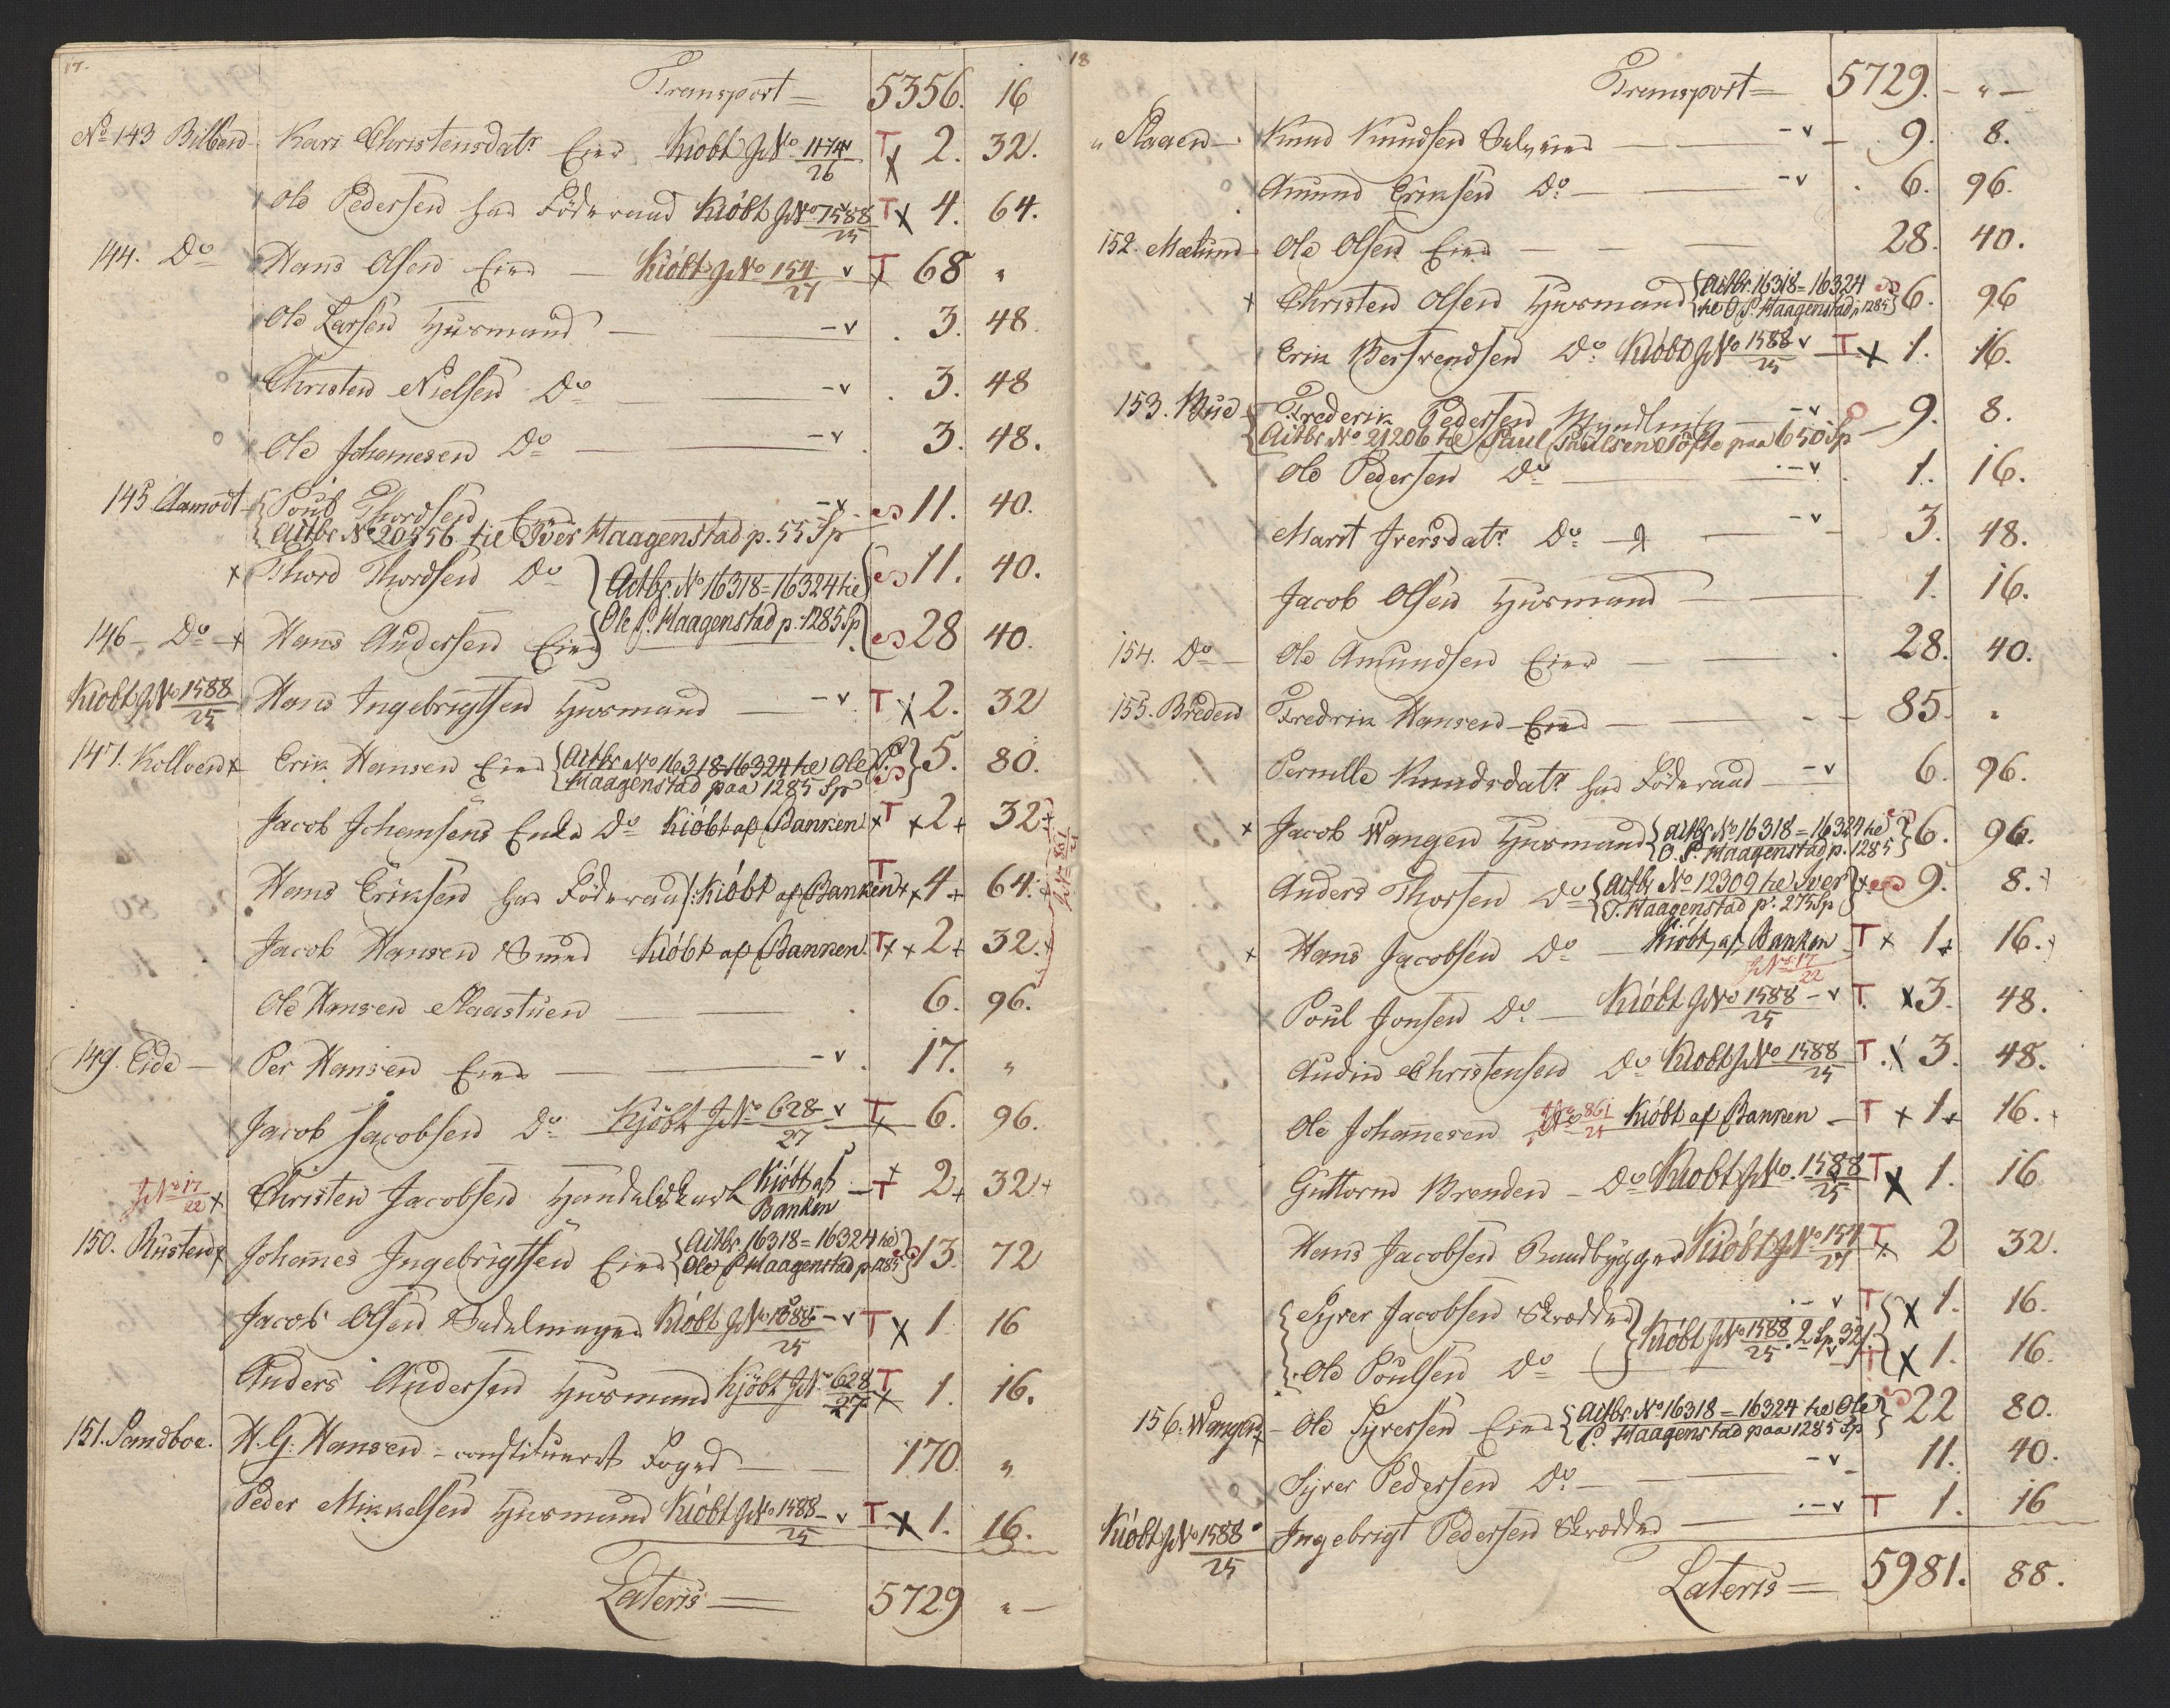 17.
Transport = 5356. 16
No 143 Bilben Kari Christensdatr Eier Kiöbt J.No 1174/26 T x 2. 32.
Ole Pedersen har Föderaad Kiöbt J.No 1588/25 T x 4. 64.
144. Do Hans Olsen Eier Kiöbt J.No 154/27 v T x 68 "
Ole Larsen Huusmand - v 3. 48
Christen Nielsen Do - v 3. 48
Ole Johannesen Do - v 3. 48.
145 Aamodt Poul Thordsen Eier - v 11. 40.
Actbr No 20356 til Iver Haagenstad p. 55 Sp
x Thord Thordsen Do Actbr. No 16318 = 16324 til 11. 40.
Ole P. Haagenstad p. 1285 Sp
146 - Do - x Hans Andersen Eier 28 40.
Kiöbt J.No 1588/25 Hans Ingebrigtsen Huusmand - v T x 2. 32
147. Kolloen x Erik Hansen Eier Actbr No 16318 16324 til Ole P. 5. 80.
Haagenstad paa 1285 Sp
Jacob Johansens Enke Do Kiöbt af Banken x T x 2 + 32 +
Hans Eriksen har Föderaad Kiöbt af Banken T + x 4 + 64.
Jacob Hansen Smed Kiöbt af Banken T x + 2 + 32. +
J.No 861/21
Ole Hansen Slaastuen 6. 96.
149. Eide - Per Hansen Eier - v 17. "
Jacob Jacobsen Do Kjöbt J.No 628/27 v T x 6. 96.
J.No 17/22 x Christen Jacobsen Handelskarl Kiöbt af Banken - T x 2 + 32 +
150. Rusten x Johannes Ingebrigtsen Eier Actbr. 16318 = 16324 til 13. 72
Ole P Haagenstad p. 1285
Jacob Olsen Sadelmager Kiöbt J.No 1588/25 - v T x 1 16
Anders Andersen Huusmand Kjöbt J.No 628/27 T x 1. 16.
151. Sandboe. H. G. Hansen - constitueret Foged 170. "
Peder Mikkelsen Huusmand Kiöbt J.No 1588/25 - v T x 1. 16.
Lateris = 5729 " -
18
Transport = 5729. - " -
" Slaaen - Knud Knudsen Selveier - v 9. 8.
Amund Eriksen Do - v 6. 96.
152. Mælum Ole Olsen Eier 28. 40.
x Christen Olsen Huusmand Actbr. 16318 = 16324 6. 96
til O. P. Haagenstad p. 1285
Erik Do Kiöbt J.No 1588/25 v T x 1. 16.
153. Bue Frederik Pedersen Myndling - v 9. 8.
Actbr No 21206 til Paul Paulsen Töfte paa 650 Sp
Ole Pedersen Do - v 1. 16.
Marit Iversdatr Do - v 3. 48.
Jacob Olsen Huusmand 1. 16.
154. Do - Ole Amundsen Eier 28. 40.
155. Breden Fredrik Hansen Eier 85. "
Pernille Knudsdatr har Föderaad - v 6. 96.
x Jacob Wangen Huusmand Actbr No 16318 = 16324 til 6. 96.
O. P. Haagenstad p. 1285
Anders Thorsen Do Actbr No 12309 til Iver 9. 8. +
T. Haagenstad p. 275 Sp
x Hans Jacobsen Do - Kiöbt af Banken T x 1 + 16. +
J.No 17/22
Poul Jonsen Do - Kiöbt J.No 1588/25 - v T. x 3. 48.
Audin Christensen Do Kiöbt J.No 1588/25 T. x 3. 48.
Ole Johannesen J.No 861/21 Kiöbt af Banken - T x 1 + 16. +
Guttorm Brenden - Do Kiobt J.No. 1588/25 T x 1. 16
Hans Jacobsen Raadbygger Kiöbt J.No 154/27 T x 2 32.
Syver Jacobsen Skrædder - v T x 1. 16.
Kiöbt J.No 1588/25. 2 Sp 32 s.
Ole Poulsen Do v T x 1. 16.
156. Wangen x - Ole Syversen Eier Actbr No 16318 = 16324 til Ole 22 80.
P. Haagenstad paa 1285 Sp
Syver Pedersen Do - v 11. 40.
Kiöbt J.No 1588/25 Ingebrigt Pedersen Skrædder - v T 1. 16
Lateris = 5981. 88.